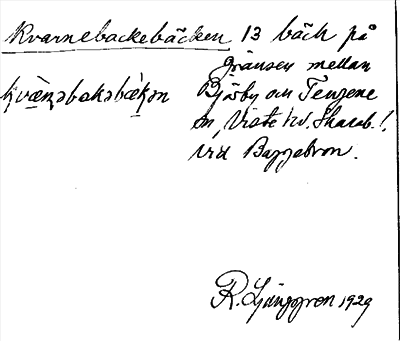 Kvarnebackebäcken 13 bäck på
gränsen mellan
kvæ̀ṇəbakəbæ̀kən Bjärby och Tengene
sn, Viste hd. Skarab. l.,
vid Baggebron.
R. Ljunggren 1929